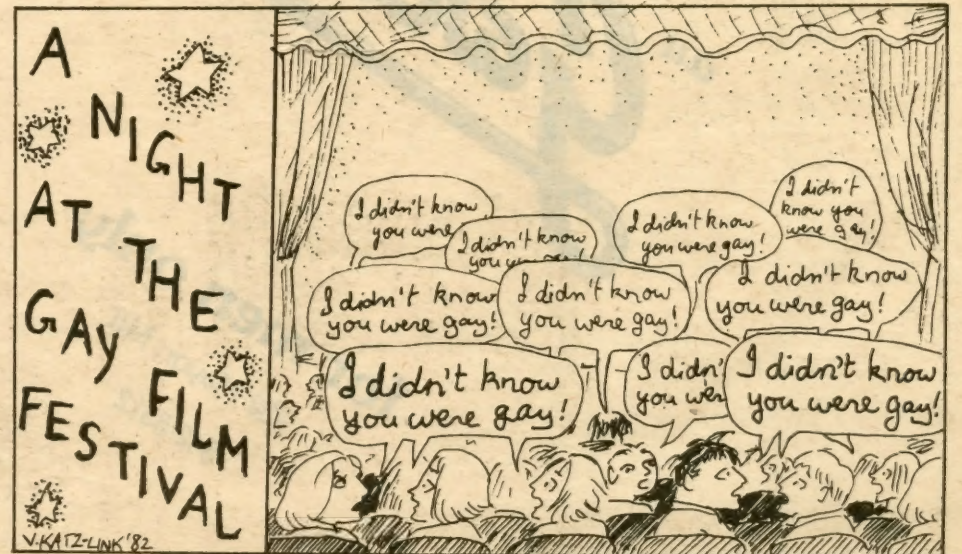 A
NIGHT
AT THE
GAY FILM
FESTIVAL
V. KATZ-LINK '82
I didn't know
you were
I didn't know
you were gay!
I didn't know
you were gay!
I didn't
know you
were gay!
I didn't know
you were gay!
I didn't know
you were gay!
I didn't know
you were gay!
I didn't know
you were gay!
I didn'
you wer
I didn't know
you were gay!